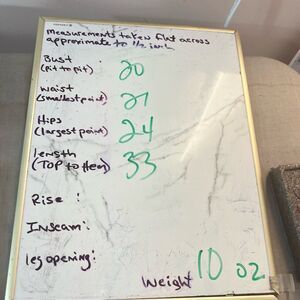 measurements taken flat across
approximate to 1/2 inch
Bust : 20
(pit to pit)
waist : 21
(smallest point)
Hips : 24
(largest point)
length : 33
(TOP to Hem)
Rise :
Inseam :
leg opening :
Weight 10 oz